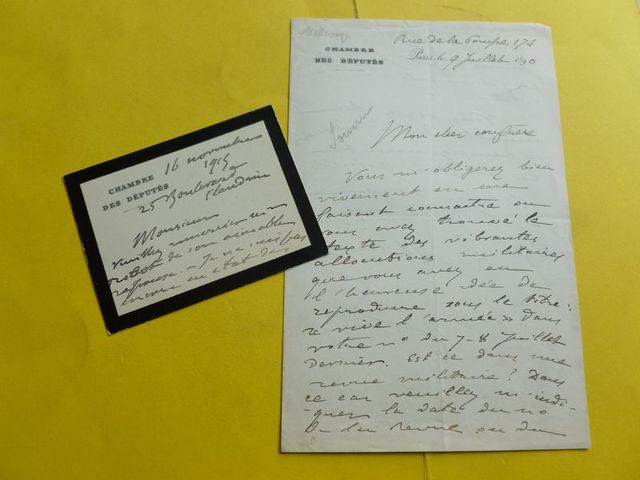 CHAMBRE
DES DÉPUTÉS
Rue de la Pompe 174
Paris, le 9 Juillet 1890
Mon cher confrère
Vous m'obligerez bien
vivement en me
faisant connaître où
vous avez trouvé le
texte des vibrantes
allocutions militaires
que vous avez eu
l'heureuse idée de
reproduire sous le titre :
« vive l'armée » dans
votre no du 7-8 Juillet
dernier. Est ce dans une
revue militaire ? Dans
ce cas veuillez m'indi-
-quer la date du no
de la revue ou du
CHAMBRE
DES DÉPUTÉS
16 novembre
1915
25 Boulevard
Monsieur
veuillez remercier
de son aimable
réponse. - Je ne suis pas
encore en état de